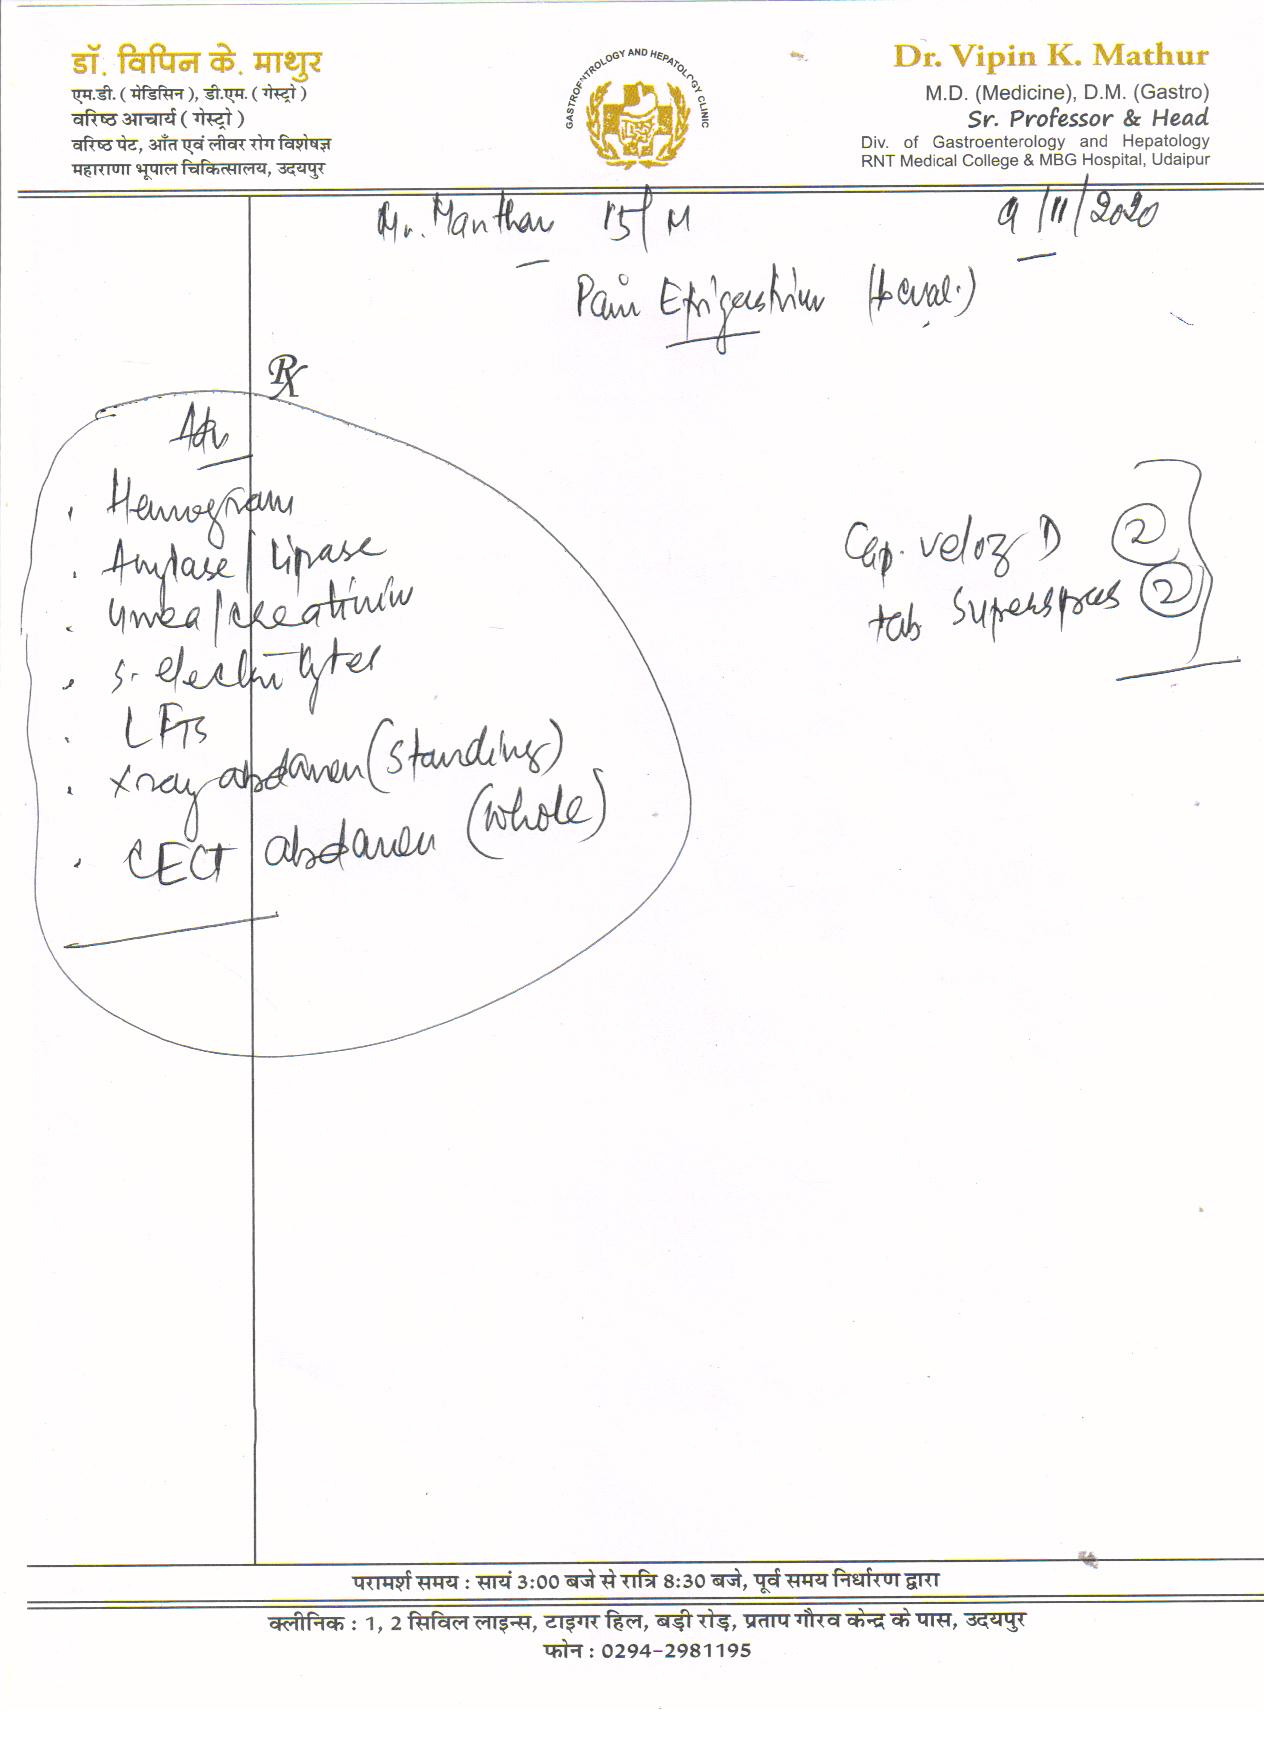 डॉ. विपिन के. माथुर
एम.डी. ( मेडिसिन ), डी.एम. ( गेस्ट्रो )
वरिष्ठ आचार्य ( गेस्ट्रो )
वरिष्ठ पेट, आँत एवं लीवर रोग विशेषज्ञ
महाराणा भूपाल चिकित्सालय, उदयपुर
GASTROENTROLOGY AND HEPATOLOGY CLINIC
Dr. Vipin K. Mathur
M.D. (Medicine), D.M. (Gastro)
Sr. Professor & Head
Div. of Gastroenterology and Hepatology
RNT Medical College & MBG Hospital, Udaipur
Mr. Manthan 15/M 9/11/2020
Pain Epigastrium
Rx
Adv
Hemogram
Amylase/Lipase
Urea/creatinin
S. electrolytes
LFTs
Xray abdomen (standing)
CECT abdomen (whole)
Cap. Veloz D 2
tab Superspas 2
परामर्श समय : सायं 3:00 बजे से रात्रि 8:30 बजे, पूर्व समय निर्धारण द्वारा
क्लीनिक : 1, 2 सिविल लाइन्स, टाइगर हिल, बड़ी रोड़, प्रताप गौरव केन्द्र के पास, उदयपुर
फोन : 0294-2981195